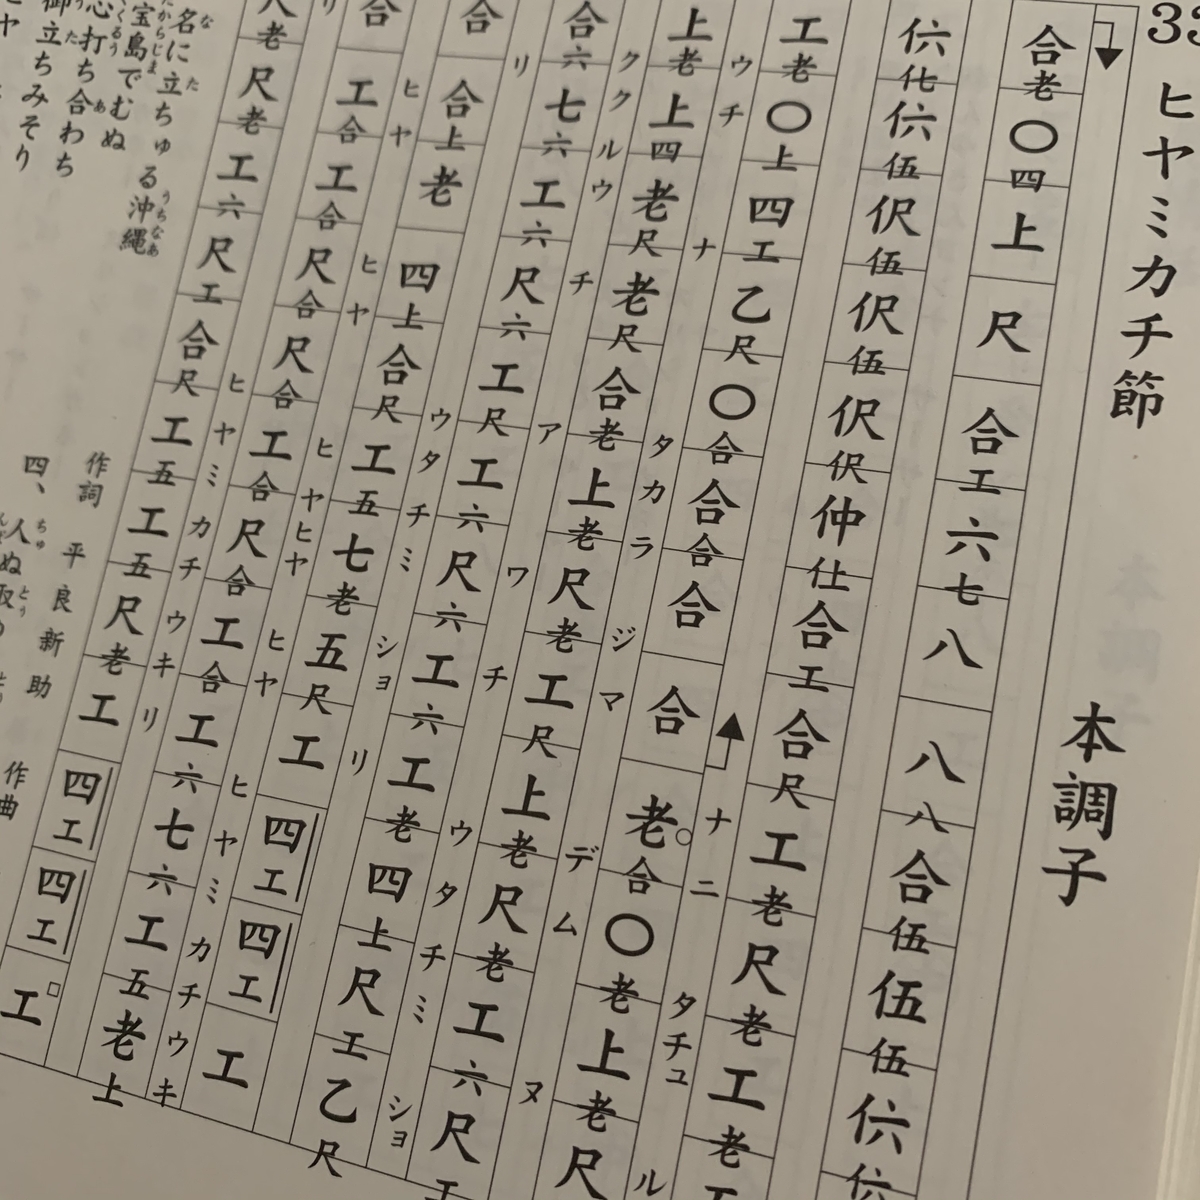 ヒヤミカチ節
本調子
合老〇四上尺合工六七八八八合伍伍伍伬
伬㐹伬伍伬伍伬伍伬伬仲仕合工合尺工老尺老工老工
工老〇上四工乙尺〇合合合合合老合〇老上老尺
ウチナタカラジマナニタチュル
上老上四老尺老尺合老上老尺老工尺上老尺老工六尺工
ククルウチアワチデムヌ
合六七六工六尺六工尺工六尺六工六工老四上尺工乙尺
リウタチミショリウタチミショ
合合上老四上合尺工五七老五尺工四工四工工
ヒヤヒヤヒヤヒヤヒヤヒヤミカチウキ
合工合工合尺合尺合工合尺合工合工六七六工五老上
リヒヤミカチウキリ
老尺老工六尺工合尺工五工五尺老工四工四工工
名に立ちゅる沖縄
宝島でむぬ
心打ち合わち
御立ちみそり
作詞 平良新助
作曲
四、人ぬ取